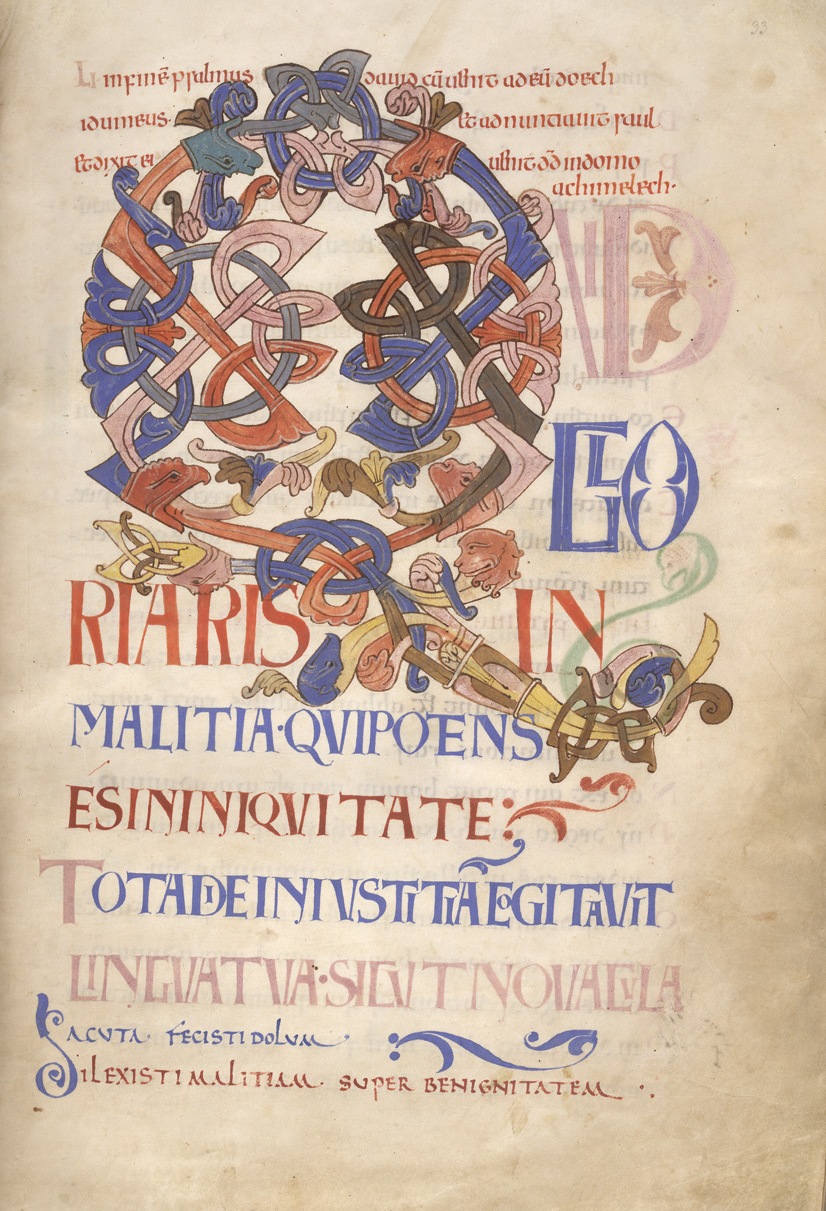 93
In finē psalmus dauid cū uenit ad eū doech
idumeus· et adnuntiauit saul
et dixit ei uenit dd̄ in domo
achimelech·
QVID
GLO
RIARIS IN
MALITIA·QVI POTENS
ES IN INIQVITATE:
TOTA DIE INIVSTITIĀ COGITAVIT
LINGUA TVA·SICUT NOVACULA
ACVTA· FECISTI DOLVM·
DILEXISTI MALITIAM· SVPER BENIGNITATEM·.